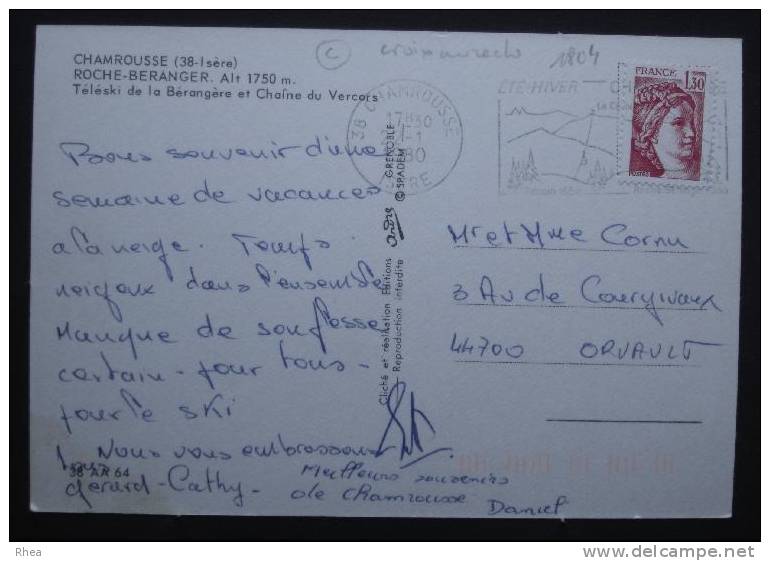 CHAMROUSSE (38-Isère)
ROCHE-BERANGER. Alt 1750 m.
Téléski de la Bérangère et Chaîne du Vercors
C
1804
38 CHAMROUSSE
17H30
-1
80
ISERE
ETE-HIVER
FRANCE
1,30
POSTES
Bons souvenir d'une
semaine de vacances
a la neige. Temps
neigeux dans l'ensemble
Manque de souplesse
certain - pour tous -
pour le ski
Nous vous embrassons
tous
38 AR 64
Gérard - Cathy -
Meilleurs souvenirs
de Chamrousse
Daniel
Cliché et réalisation Editions André GRENOBLE
Reproduction interdite © SPADEM
Mr et Mme Cornu
3 Av de Courgivaux
44700 ORVAULT
Rhea
www.delcampe.net